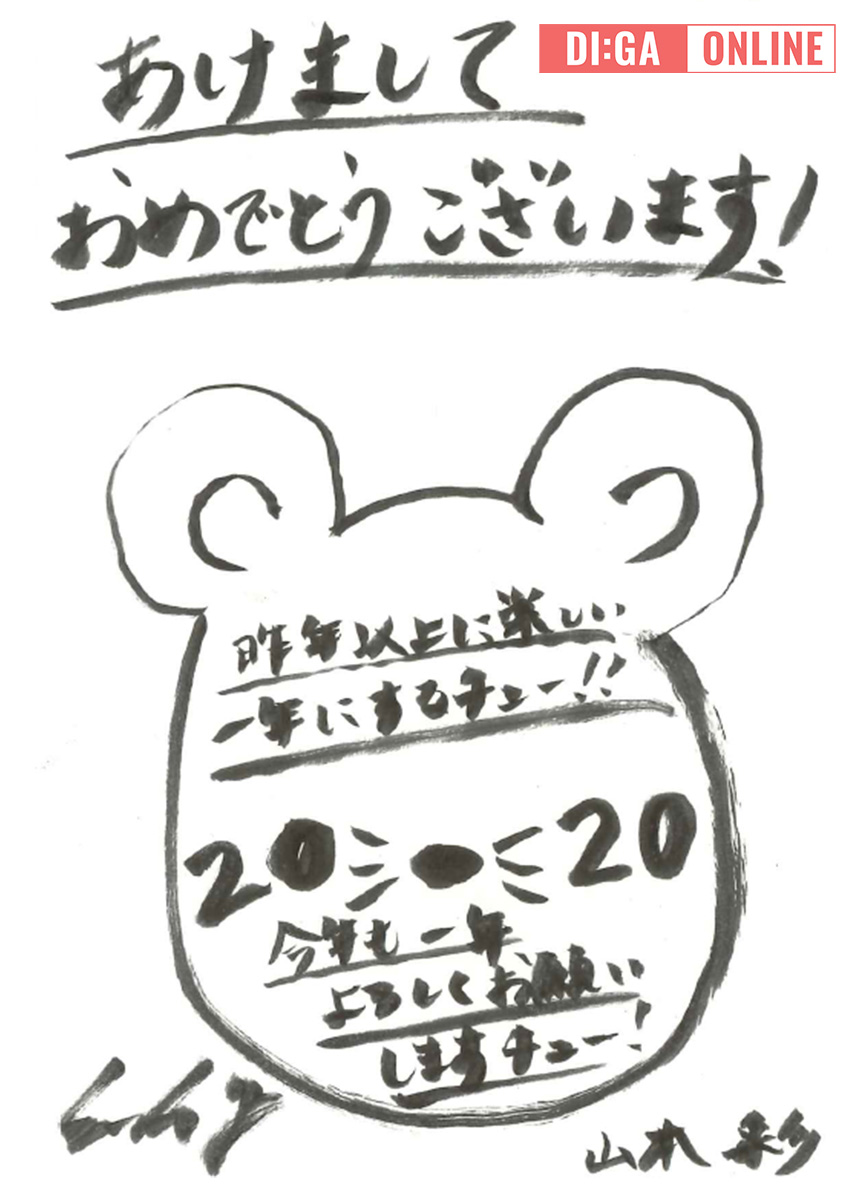 DI:GA ONLINE
あけまして
おめでとうございます!
昨年以上に楽しい
一年にするチュー!!
20 20
今年も一年
よろしくお願い
しますチュー!
山本 彩